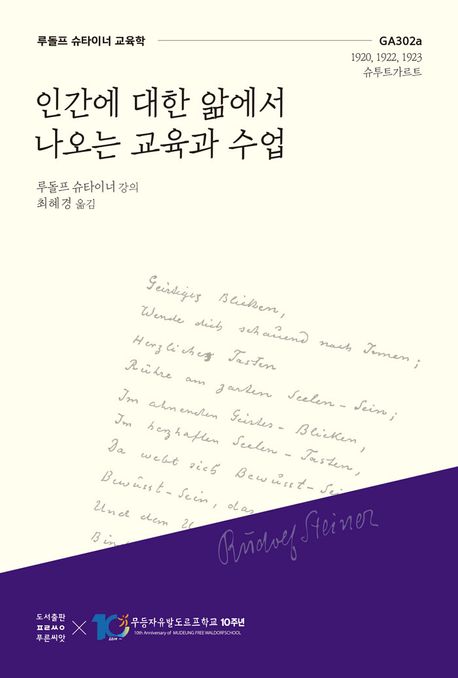 루돌프 슈타이너 교육학
GA302a
1920, 1922, 1923
슈투트가르트
인간에 대한 앎에서
나오는 교육과 수업
루돌프 슈타이너 강의
최혜경 옮김
Geistiges Blicken,
Wende dich schauend nach Innen;
Herzliches Tasten
Rühre am zarten Seelen-Sein;
Im ahnenden Geistes-Blicken,
Im herzhaften Seelen-Tasten,
Da webt sich Bewusst-Sein,
Bewusst-Sein, das
Und dem
Rudolf Steiner
도서출판
ㅍㄹㅆㅇ
푸른씨앗
×
10
무등자유발도르프학교 10주년
10th Anniversary of MUDEUNG FREE WALDORFSCHOOL